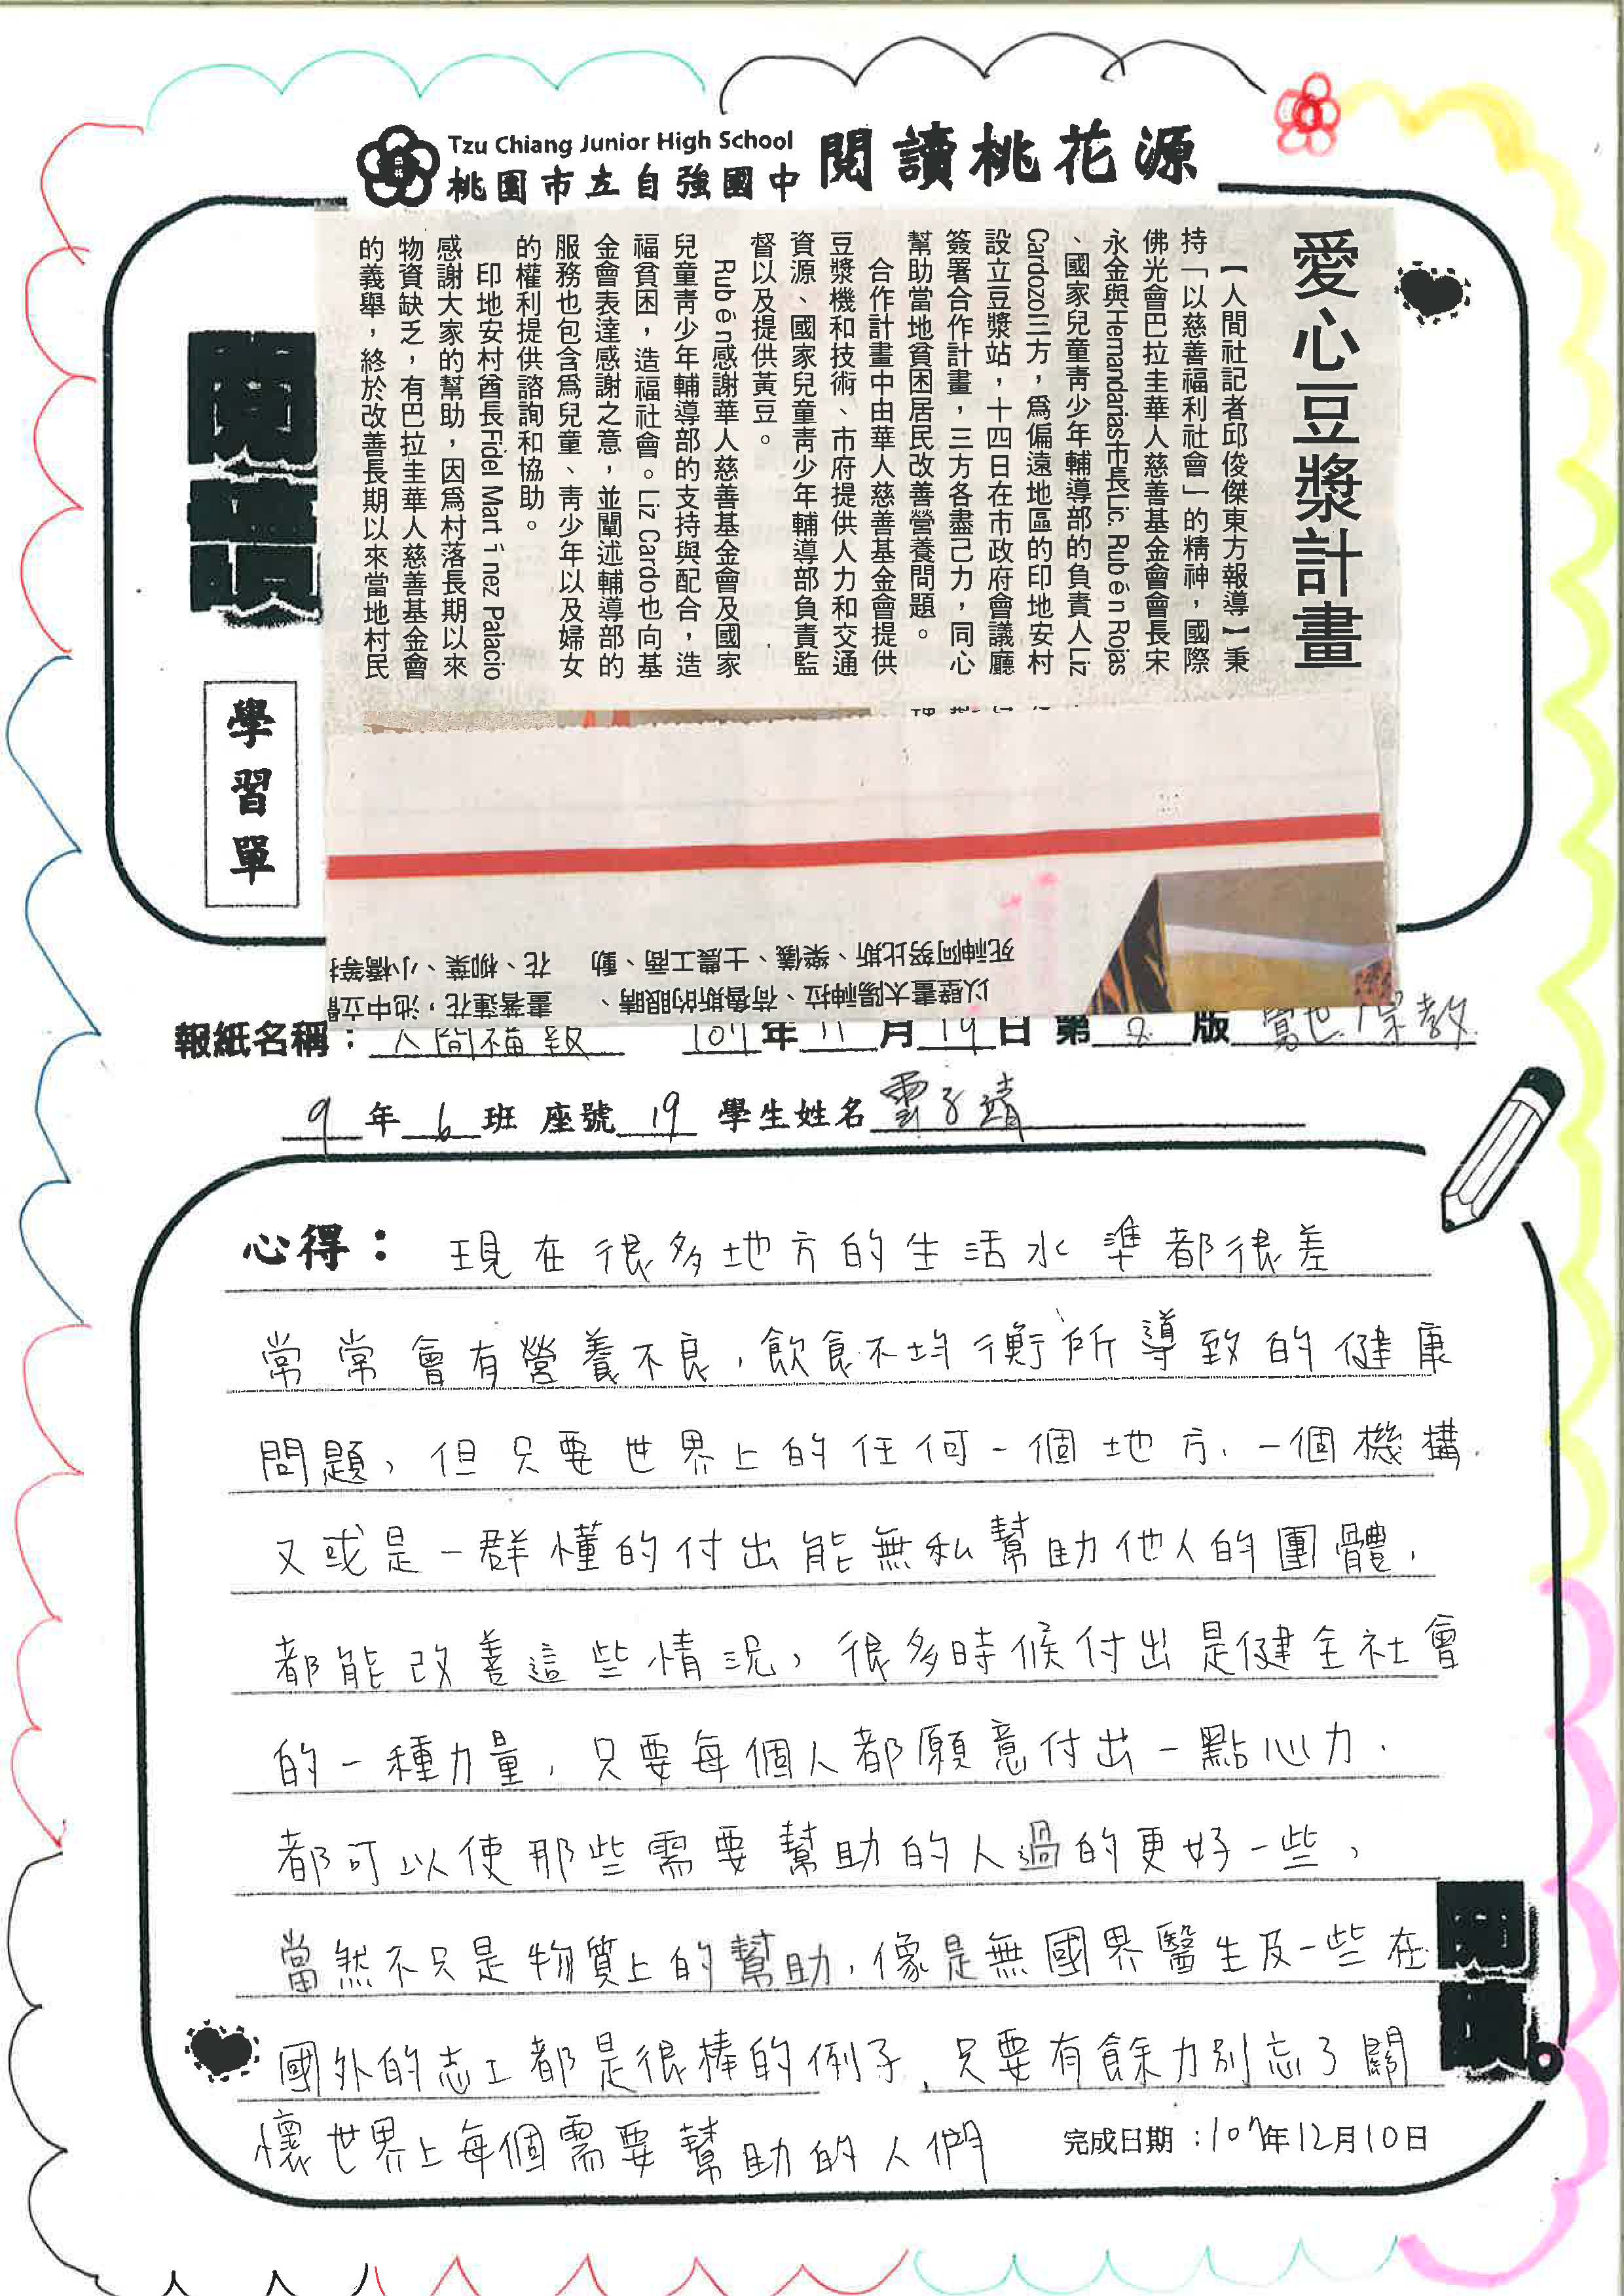 Tzu Chiang Junior High School
桃園市立自強國中
閱讀桃花源
愛心豆漿計畫
【人間社記者邱俊傑東方報導】秉
持「以慈善福利社會」的精神，國際
佛光會巴拉圭華人慈善基金會會長宋
永金與Hernandarias市長Lic. Rubén Rojas
、國家兒童青少年輔導部的負責人Liz
Cardozo三方，為偏遠地區的印地安村
設立豆漿站，十四日在市政府會議廳
簽署合作計畫，三方各盡己力，同心
幫助當地貧困居民改善營養問題。
合作計畫中由華人慈善基金會提供
豆漿機和技術、市府提供人力和交通
資源、國家兒童青少年輔導部負責監
督以及提供黃豆。
Rubén感謝華人慈善基金會及國家
兒童青少年輔導部的支持與配合，造
福貧困，造福社會。Liz Cardo也向基
金會表達感謝之意，並闡述輔導部的
服務也包含為兒童、青少年以及婦女
的權利提供諮詢和協助。
印地安村酋長Fidel Martínez Palacio
感謝大家的幫助，因為村落長期以來
物資缺乏，有巴拉圭華人慈善基金會
的義舉，終於改善長期以來當地村民
閱讀
學習單
以壁畫太陽神拉、荷魯斯的眼睛、
死神阿努比斯、樂儀、士農工商、動
畫著蓮花，池中立
花、柳葉、小橋等
報紙名稱：人間福報 107年11月19日 第8版 寰世宗教
9年6班 座號19 學生姓名 雲子靖
心得：現在很多地方的生活水準都很差
常常會有營養不良，飲食不均衡所導致的健康
問題，但只要世界上的任何一個地方、一個機構、
又或是一群懂的付出能無私幫助他人的團體，
都能改善這些情況，很多時候付出是健全社會
的一種力量，只要每個人都願意付出一點心力，
都可以使那些需要幫助的人過的更好一些，
當然不只是物質上的幫助，像是無國界醫生及一些在
國外的志工都是很棒的例子，只要有餘力別忘了關
懷世界上每個需要幫助的人們
完成日期：107年12月10日
閱讀。